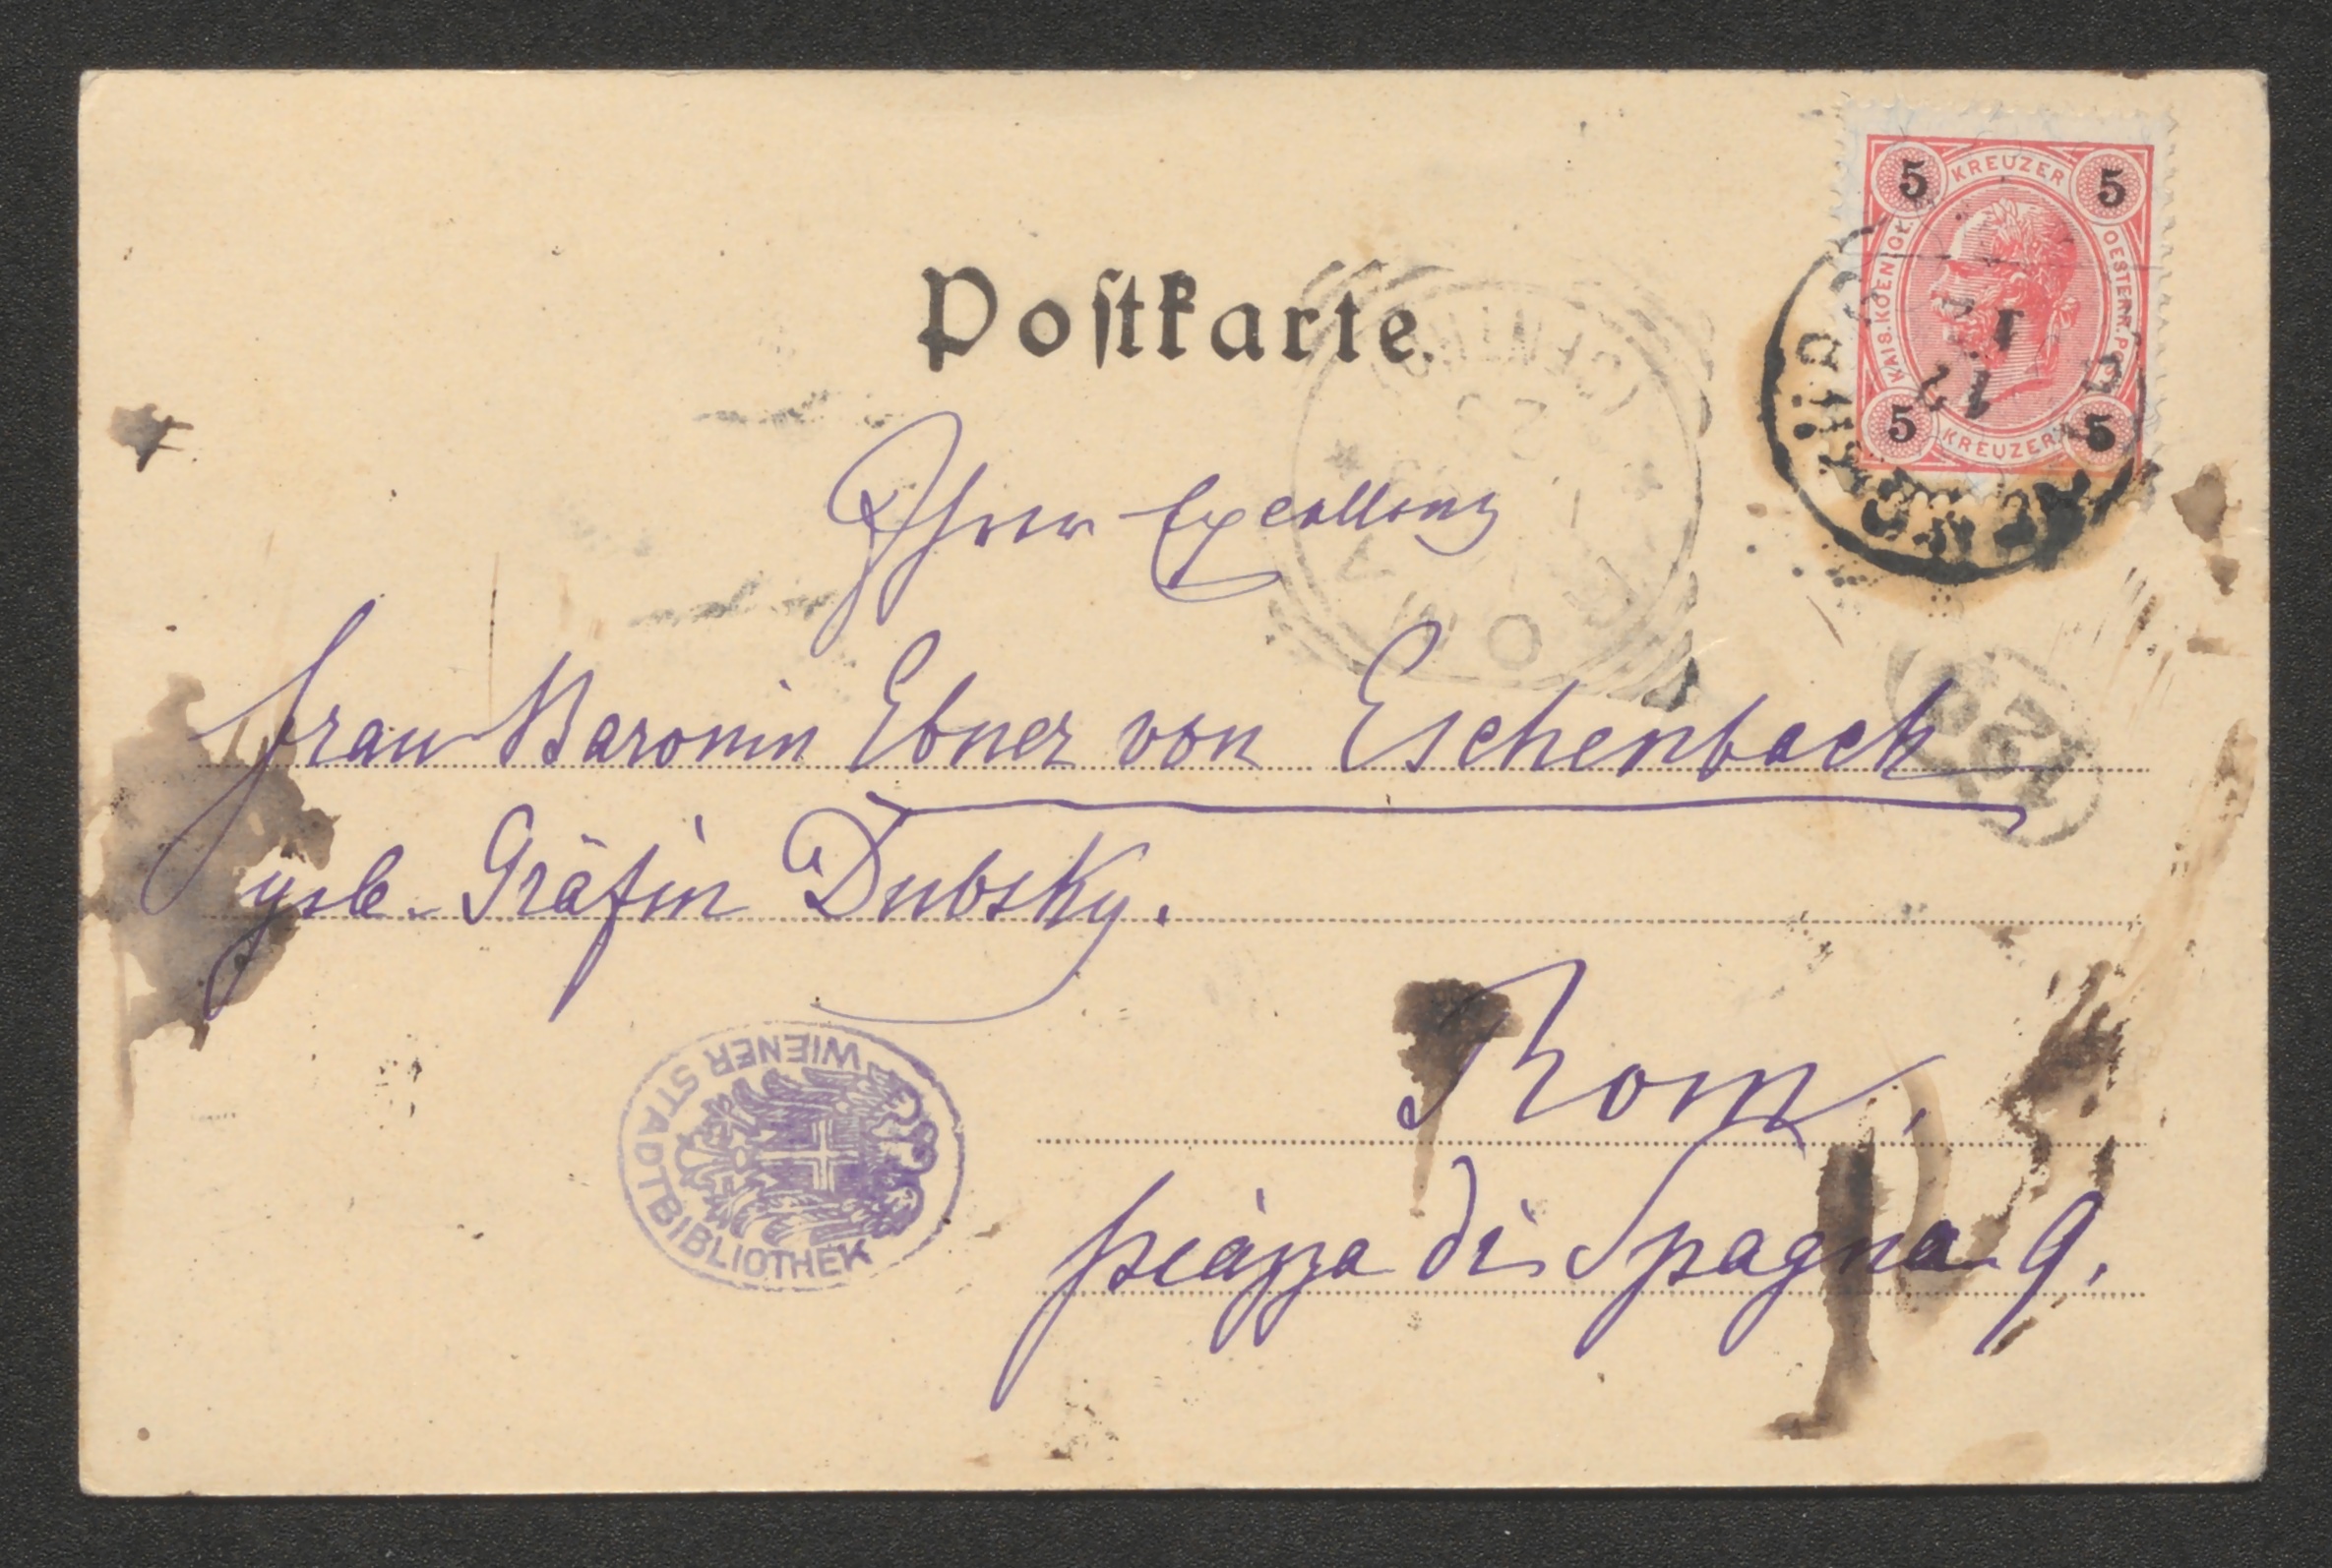 5 KREUZER 5
KAIS. KOENIGL. OESTERR. POST
5 KREUZER 5
12
Postkarte.
Ihrer Excellenz
Frau Baronin Ebner von Eschenbach
geb. Gräfin Dubsky.
Rom,
piazza di Spagna 9.
WIENER STADTBIBLIOTHEK